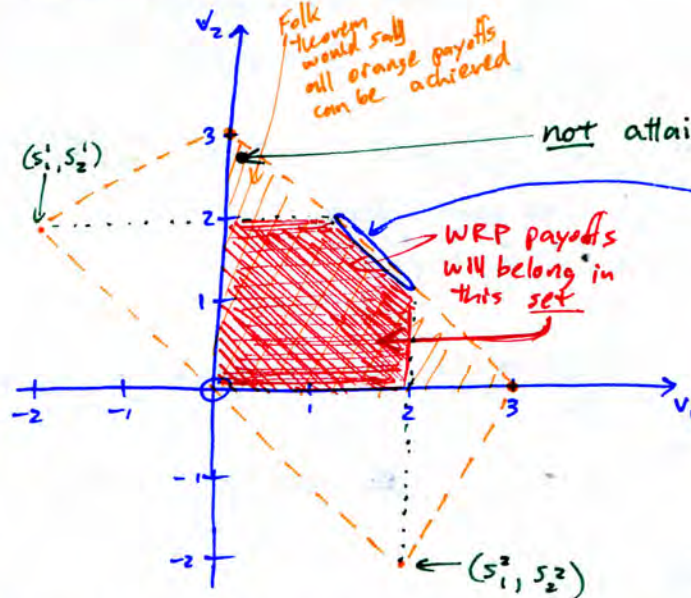 V₂
Folk
theorem
would say
all orange payoffs
can be achieved
3
not attai
(s₁¹, s₂¹)
2
WRP payoffs
will belong in
this set
1
-2
-1
1
2
3
V₁
-1
-2
(s₁², s₂²)